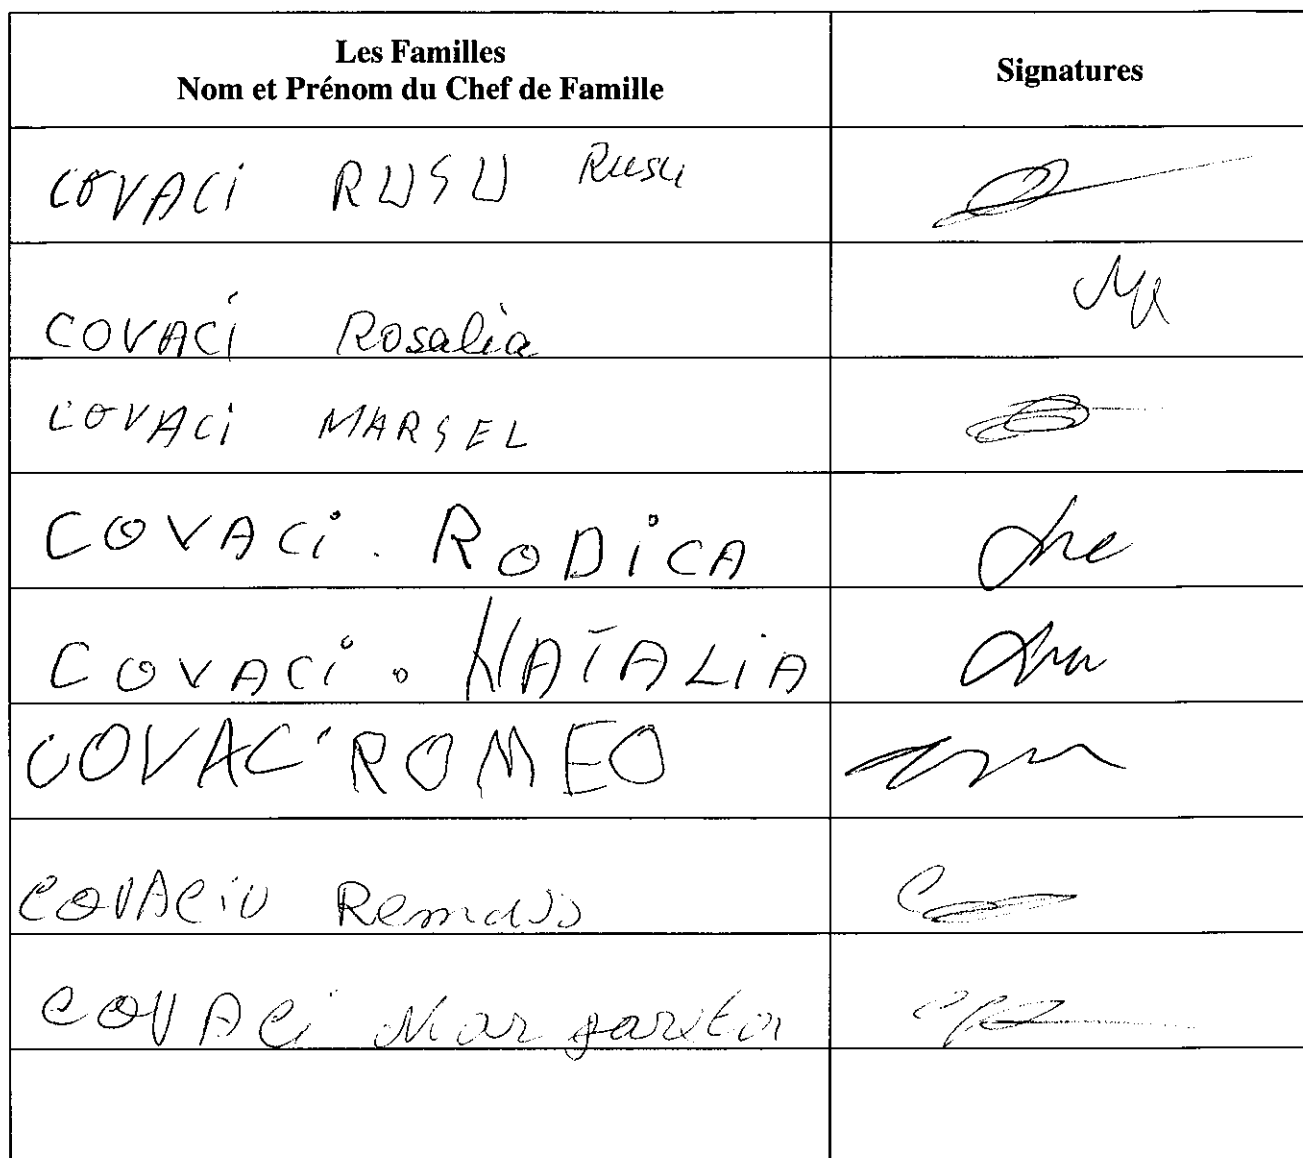 Les Familles
Nom et Prénom du Chef de Famille
Signatures
COVACi RUSU Rusu
COVACi Rosalia
COVACi MARSEL
COVACi. RODiCA
COVACi. NATALiA
COVAC' ROMEO
COVACiU
COVACi Margareta